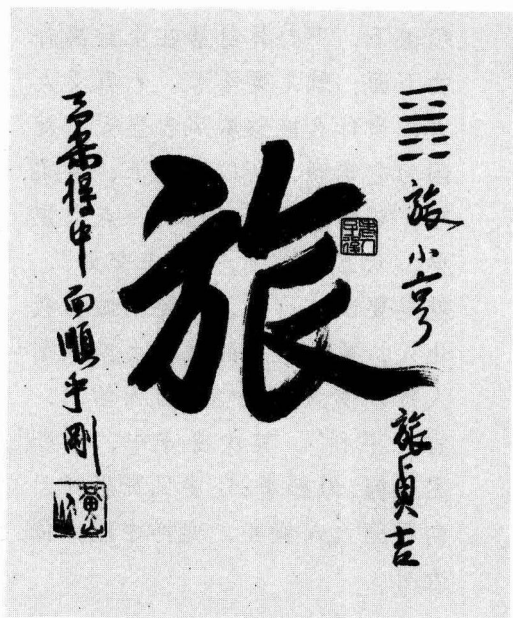 ䷷旅小亨 旅貞吉
旅
柔得中而順乎剛
黃山